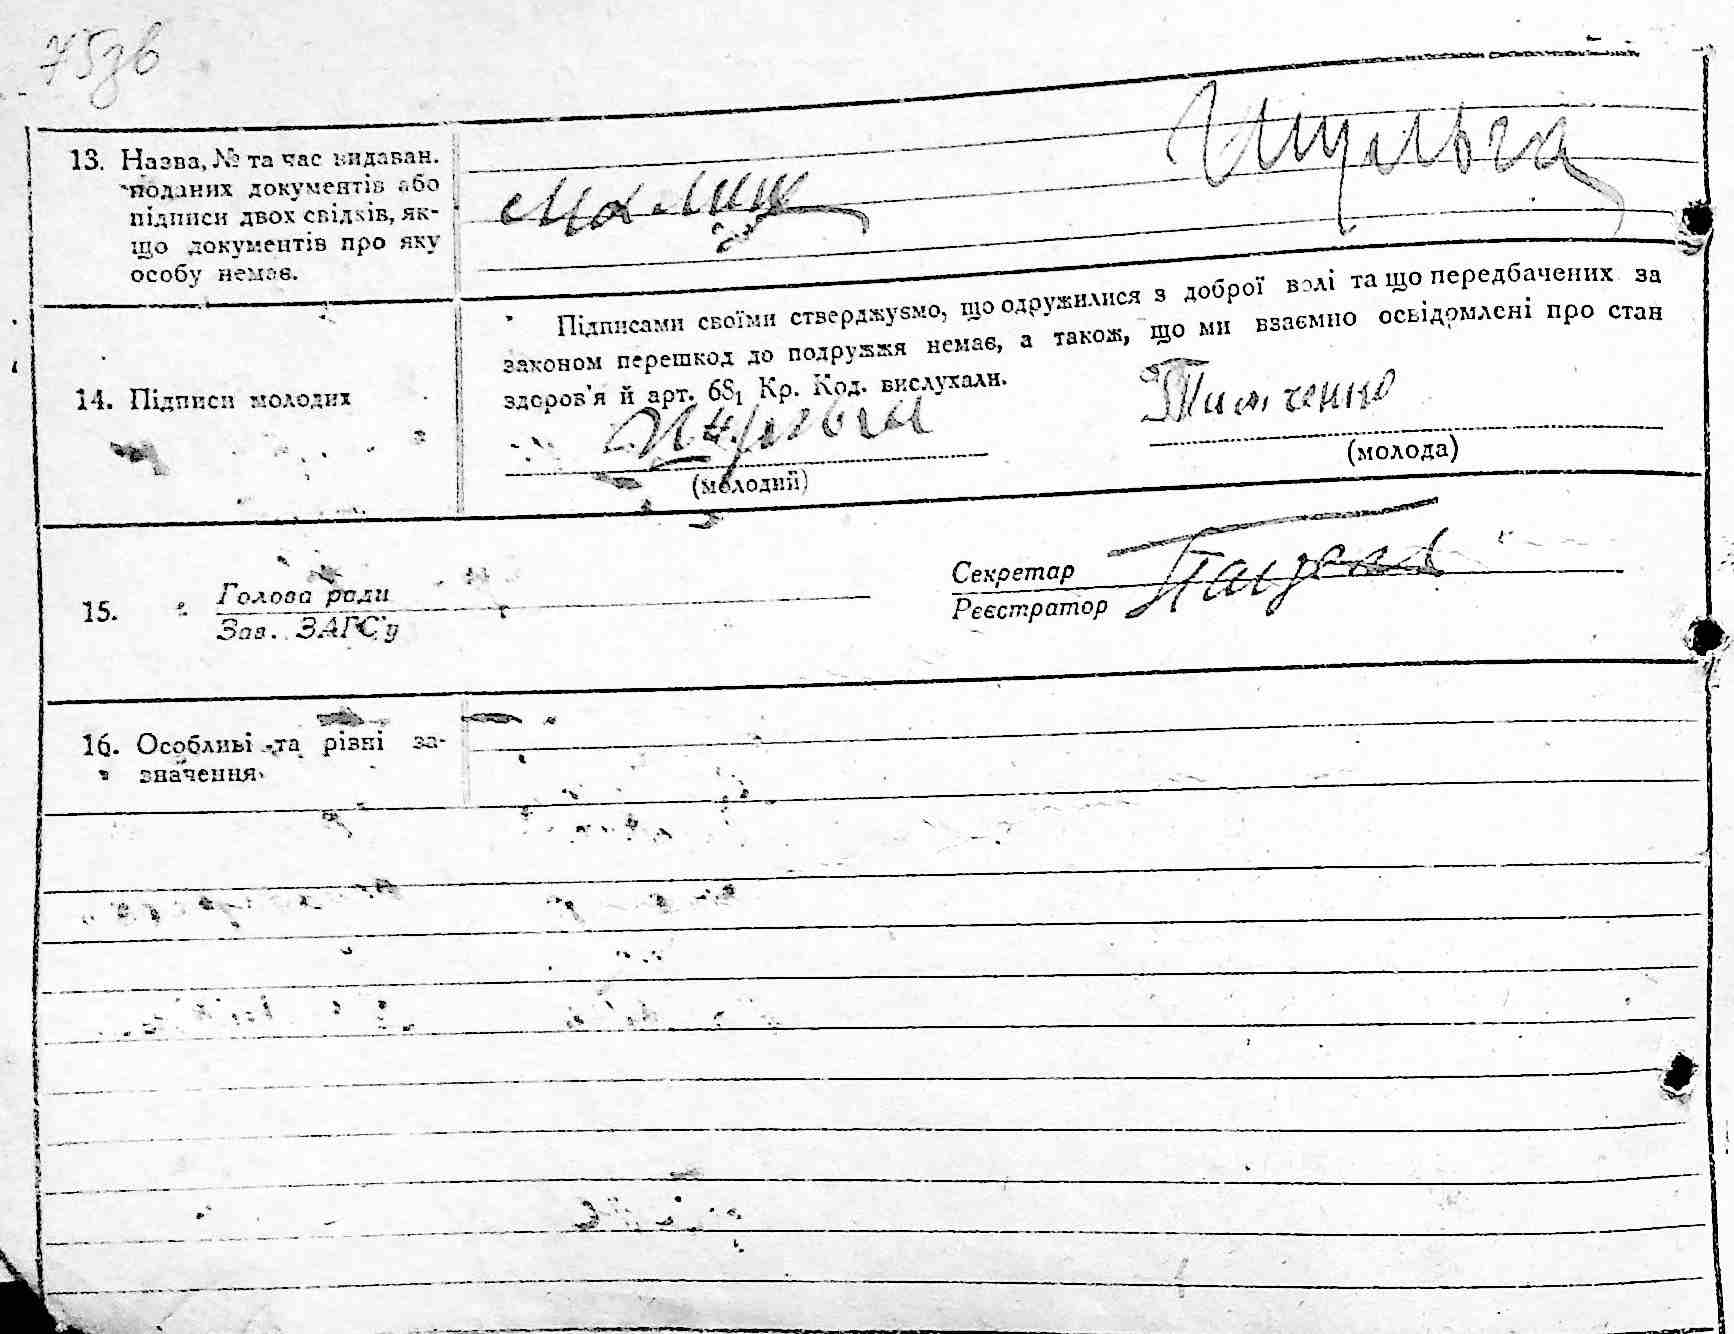 75зв
13. Назва, № та час видаван.
поданих документів або
підписи двох свідків, як-
що документів про яку
особу немає.
14. Підписи молодих
Підписами своїми стверджуємо, що одружилися з доброї волі та що передбачених за
законом перешкод до подружжя немає, а також, що ми взаємно освідомлені про стан
здоров'я й арт. 68₁ Кр. Код. вислухали.
Тимченко
(молодий)
(молода)
15.
Голова ради
Зав. ЗАГС'у
Секретар
Реєстратор
16. Особливі та різні за-
значення